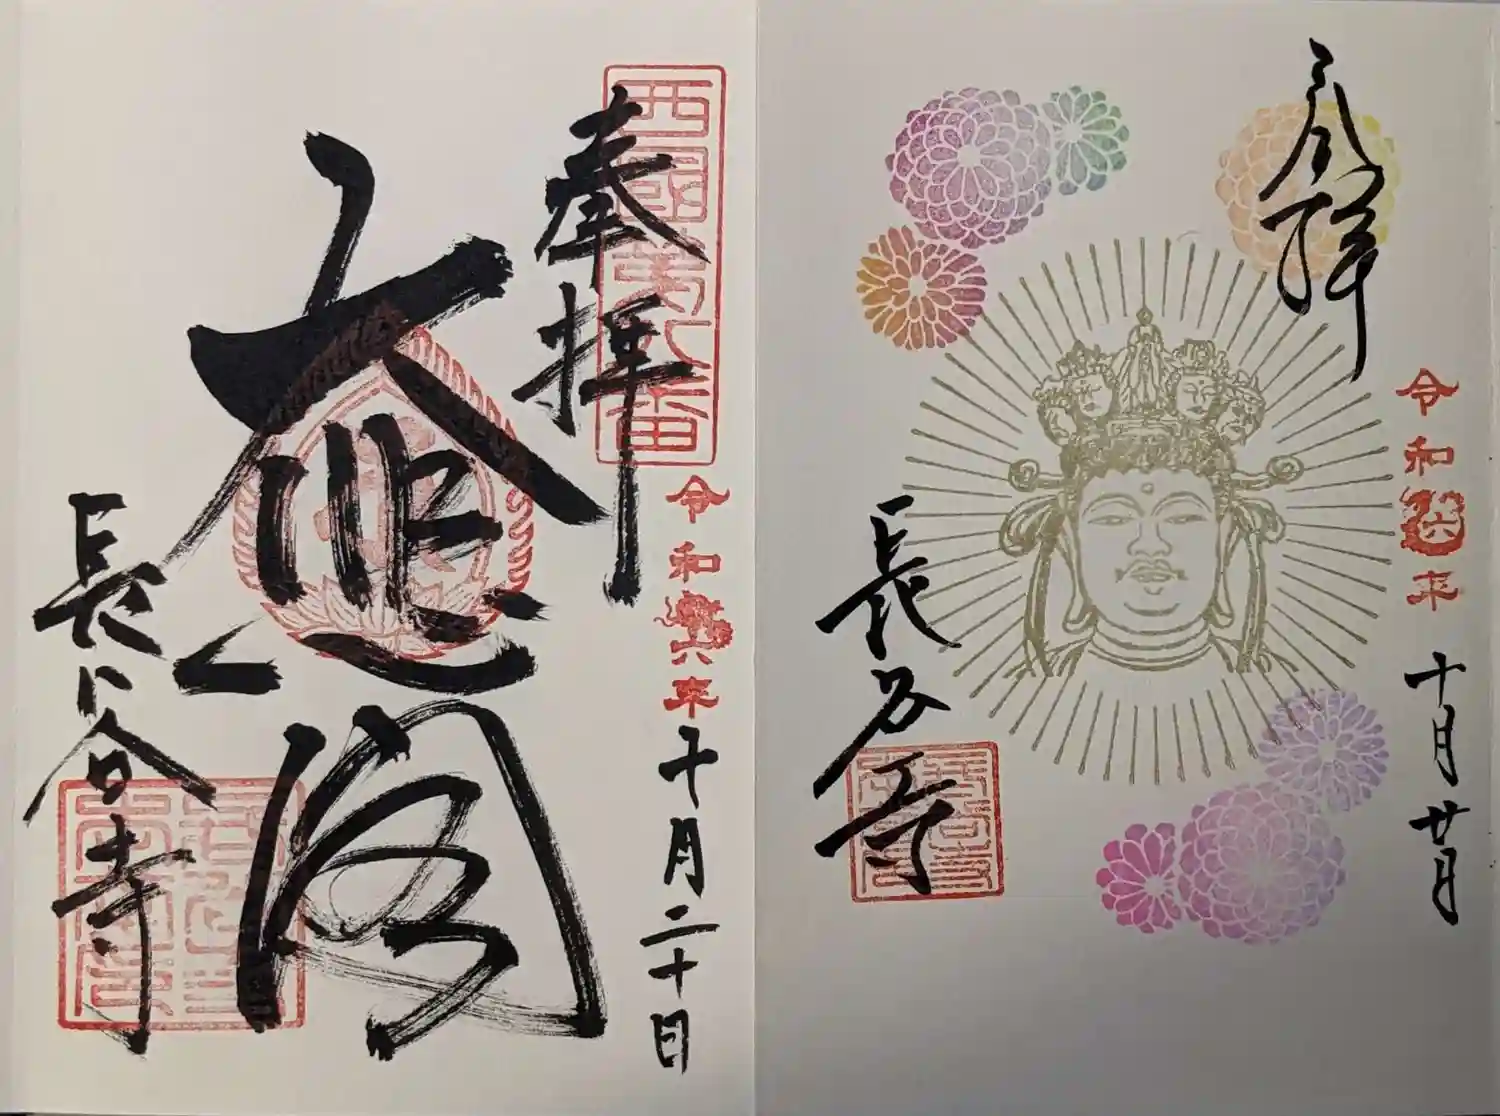 奉拝
令和六年十月廿日
長谷寺
西國第八番
奉拝
令和六年十月二十日
大悲閣
長谷寺